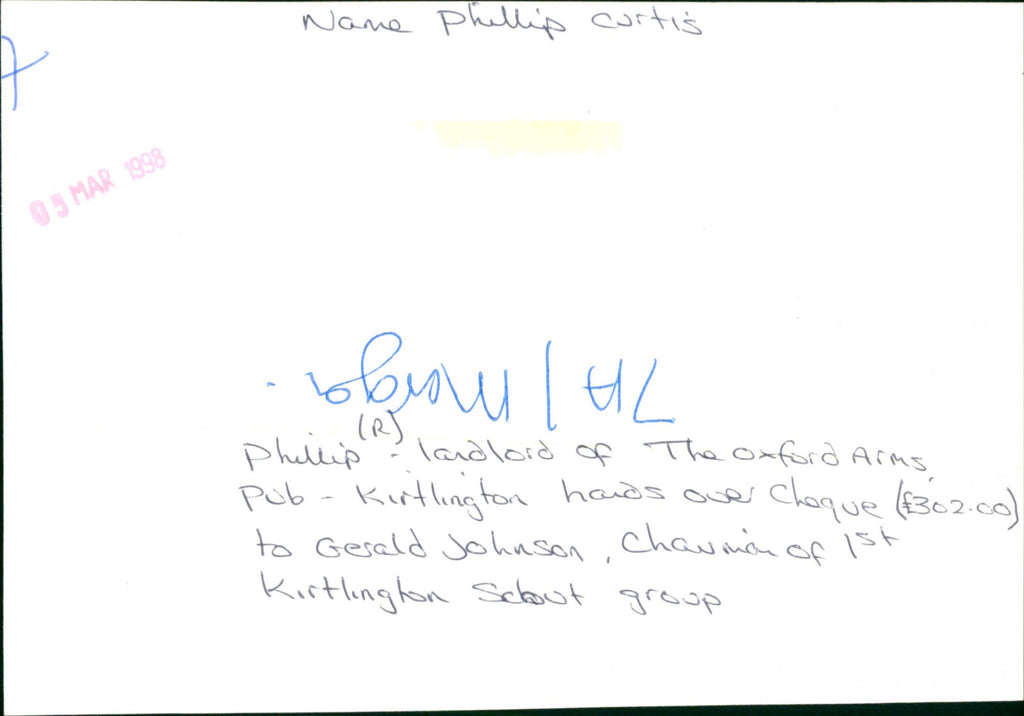 Name Phillip Curtis
05 MAR 1998
Phillip (R) - landlord of The Oxford Arms
Pub - Kirtlington hands over Cheque (£302.00)
to Gerald Johnson, Chairman of 1st
Kirtlington Scout group